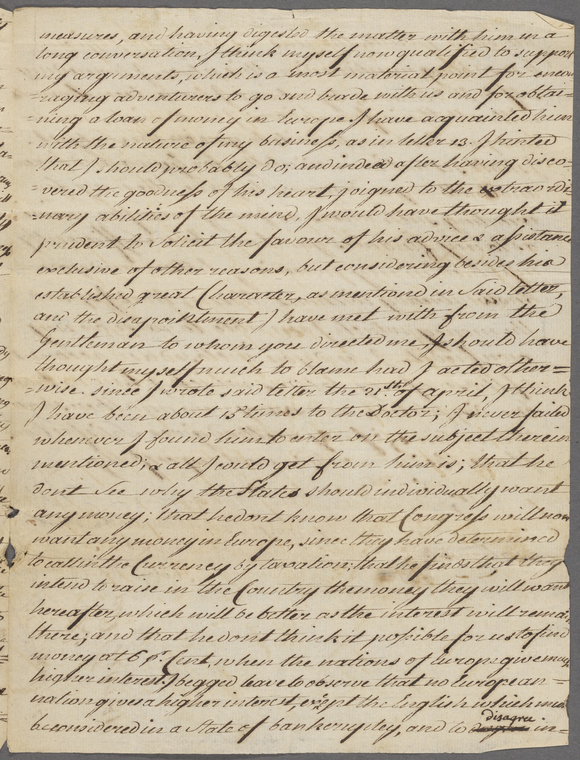 measures, and having digested the matter with him in a
long conversation, I think myself now qualified to suppor
ing arguments, which is a most material point for encou
=raging adventurers to go and trade with us and for obtai=
=ning a loan of money in Europe. I have acquainted him
with the nature of my business, as in letter 13. I hinted
that I should probably do; and indeed after having disco=
=vered the goodness of his heart, joigned to the extraordi
=nary abilities of the mind, I would have thought it
prudent to solicit the favour of his advice & assistance
exclusive of other reasons, but considering besides his
established great Character, as mentiond in said letter,
and the disapointment I have met with from the
Gentleman to whom you directed me, I should have
thought myself much to blame had I acted other=
=wise. since I wrote said letter the 21st of april, I think
I have been about 15 times to the Doctor; I never failed
whenever I found him to enter on the subject therein
mentioned; & all I could get from him is; that he
dont see why the States should individually want
any money; that he dont know that Congress will now
want any money in Europe, since they have determined
to call in the Currency by taxation; that he finds that they
intend to raise in the Country the money they will want
hereafter, which will be better as the interest will remain
there; and that he dont think it possible for us to find
money at 6 pr. Cent, when the nations of Europe give much
higher interest. I begged leave to observe that no European=
=nation gives a higher interest, except the English which must
be considered in a State of bankruptcy, and to disagree in=